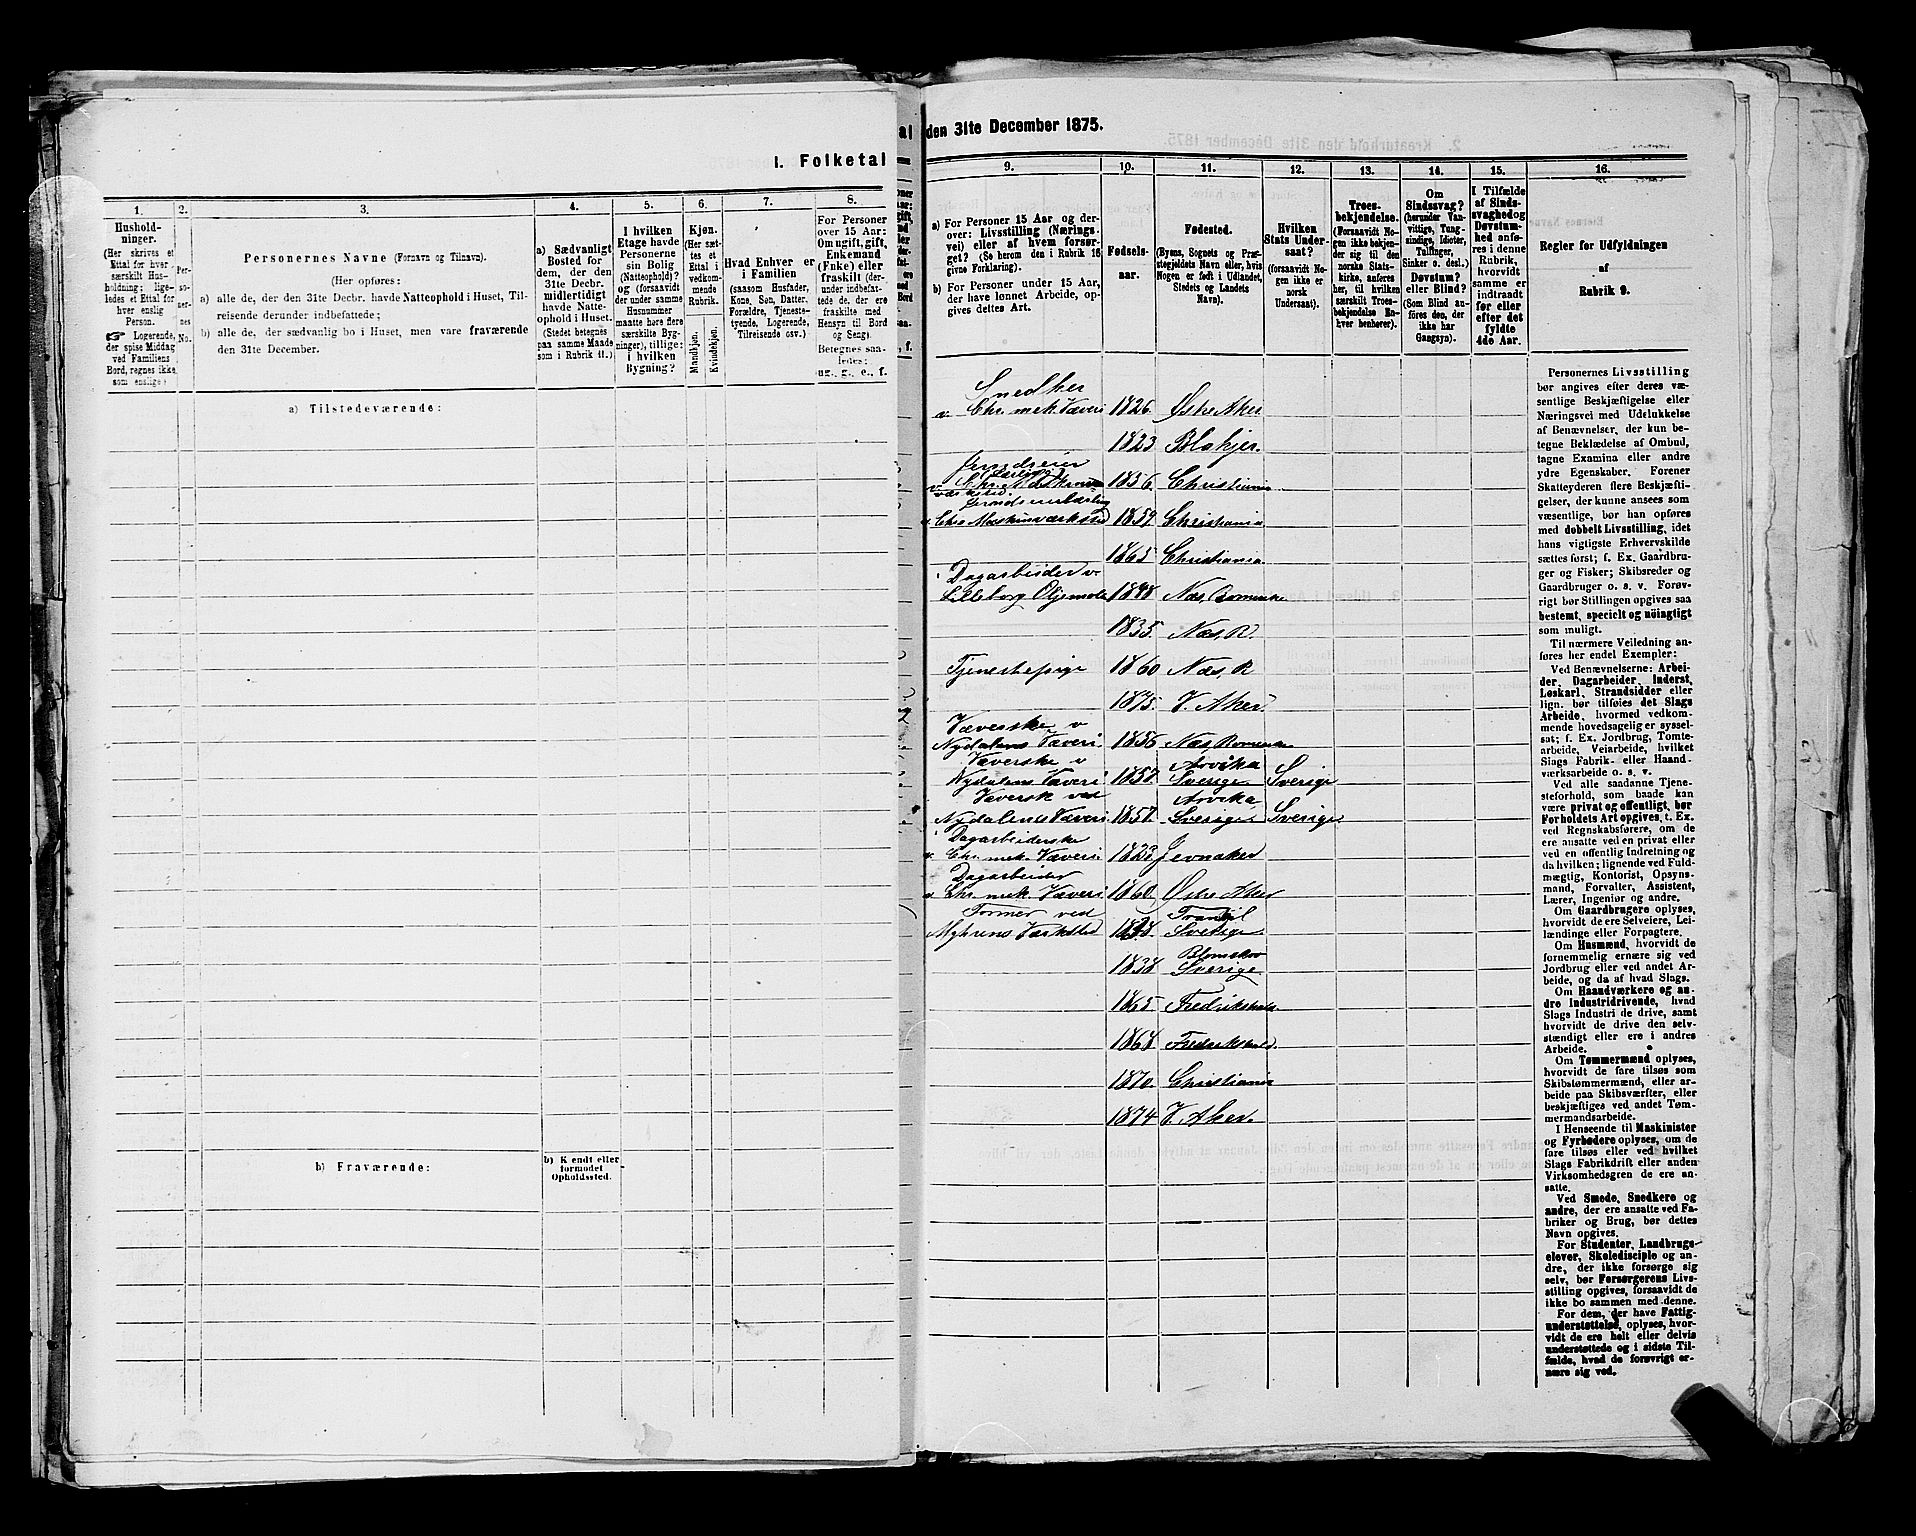 1. Folketal
1.
2.
3.
4.
5.
6.
7.
8.
Hushold-
ninger.
(Her skrives et
Ettal for hver
særskilt Hus-
holdning; lige-
ledes et Ettal for
hver enslig
Person.
Logerende,
der spise Middag
ved Familiens
Bord, regnes ikke
som enslige)
Per-
so-
ner-
nes
No.
Personernes Navne (Fornavn og Tilnavn).
(Her opføres:
a) alle de, der den 31te Decbr. havde Natteophold i Huset, Til-
reisende derunder indbefattede;
b) alle de, der sædvanlig bo i Huset, men vare fraværende
den 31te December.
a) Sædvanligt
Bosted for
dem, der den
31te Decbr.
midlertidigt
havde Natte-
ophold i Huset.
(Stedet betegnes
paa samme Maade
som i Rubrik 11.)
I hvilken
Etage havde
Personerne
sin Bolig
(Natteophold)?
og (forsaavidt
der under samme
Husnummer
maatte høre flere
særskilte Byg-
ninger), tillige:
i hvilken
Bygning?
Kjøn.
(Her sæt-
tes et
Ettal i
vedkom-
mende
Rubrik.
Mandkjøn.
Kvindekjøn.
Hvad Enhver er
i Familien
(saasom Husfader,
Kone, Søn, Datter,
Forældre, Tjeneste-
tyende, Logerende,
Tilreisende osv.)
For Personer
over 15 Aar:
Om ugift, gift,
Enkemand
(Enke) eller
fraskilt (der-
under indbefat-
tede de, der ere
fraskilte med
Hensyn til Bord
og Seng).
Betegnes saa-
ledes:
ug., g., e., f.
a) Tilstedeværende:
b) Fraværende:
b) Kendt eller
formodet
Opholdssted.
den 31te December 1875.
9.
10.
11.
12.
13.
14.
15.
16.
a) For Personer 15 Aar og der-
over: Livsstilling (Nærings-
vei) eller af hvem forsør-
get? (Se herom den i Rubrik 16
givne Forklaring).
b) For Personer under 15 Aar,
der have lønnet Arbeide, op-
gives dettes Art.
Fødsels-
aar.
Fødested.
(Byens, Sognets og Præ-
stegjeldets Navn eller, hvis
Nogen er født i Udlandet,
Stedets og Landets
Navn).
Hvilken
Stats Under-
saat?
(forsaavidt No-
gen ikke er
norsk
Undersaat).
Troes-
bekjendelse.
(Forsaavidt No-
gen ikke bekjen-
der sig til den
norske Stats-
kirke, anføres
her, til hvilken
særskilt Troes-
bekjendelse En-
hver henhører).
Om
Sindssvag?
(herunder Van-
vittige, Tung-
sindige, Idioter,
Tullinger,
Sinker o. desl.)
Døvstum?
eller Blind?
(Som Blind an-
føres den, der
ikke har
Gangsyn).
I Tilfælde
af Sinds-
svaghed og
Døvstum-
hed anfø-
res i denne
Rubrik,
hvorvidt
samme er
indtraadt
før eller
efter det
fyldte
4de Aar.
Regler for Udfyldningen
af
Rubrik 9.
Chr. mek. Væveri 1826. Østre Aker
1823 Blakjer.
1856. Christiania
Chr. Maskinværksted 1859. Christiania
1865 Christiania
Dagarbeider v.
Lilleborg Oljemølle 1848 Næs, Romerike
1835. Næs, R.
Tjenestepige 1860 Næs, R
1875. V. Aker
Væverske v
Nydalens Væveri. 1856 Næs, Romerike
Væverske v Arvika
Nydalens Væveri 1857. Sverige Sverige
Væversk ved Arvika
Nydalens Væveri 1857. Sverige Sverige
Dagarbeiderske
v. Chr. mek. Væveri. 1823 Jevnaker
Dagarbeider
v Chr. mek. Væveri 1860. Østre Aker
Former ved
Myhrens Værksted 1838. Sverige
Blomskov
1838 Sverige
1865 Fredrikshald
1868 Fredrikshald.
1870. Christiania
1874 V. Aker.
Personernes Livsstilling
bør angives efter deres væ-
sentlige Beskjæftigelse eller
Næringsvei med Udelukkelse
af Benævnelser, der kun be-
tegne Beklædelse af Ombud,
tagne Examina eller andre
ydre Egenskaber. Forener
Skatteyderen flere Beskjæfti-
gelser, der kunne ansees som
væsentlige, bør han opføres
med dobbelt Livsstilling, idet
hans vigtigste Erhvervskilde
sættes først; f. Ex. Gaardbru-
ger og Fisker; Skibsreder og
Gaardbruger o. s. v. Forøv-
rigt bør Stillingen opgives saa
bestemt, specielt og nöiagtigt
som muligt.
Til nærmere Veiledning an-
føres her endel Exempler:
Ved Benævnelserne: Arbei-
der, Dagarbeider, Inderst,
Løskarl, Strandsidder eller
lign. bør tilføies det Slags
Arbeide, hvormed vedkom-
mende hovedsagelig er syssel-
sat; f. Ex. Jordbrug, Tomte-
arbeide, Veiarbeide, hvilket
Slags Fabrik- eller Haand-
værksarbeide o. s. v.
Ved alle saadanne Tjene-
steforhold, som baade kan
være privat og offentligt, bør
Forholdets Art opgives, t. Ex.
ved Regnskabsførere, om de
ere ansatte ved en privat eller
ved en offentlig Indretning og
da hvilken; lignende ved Fuld-
mægtig, Kontorist, Opsyns-
mand, Forvalter, Assistent,
Lærer, Ingeniør og andre.
Om Gaardbrugere oplyses,
hvorvidt de ere Selveiere, Lei-
lændinge eller Forpagtere.
Om Husmænd, hvorvidt de
fornemmelig ernære sig ved
Jordbrug eller ved andet Ar-
beide, og da af hvad Slags.
Om Haandværkere og an-
dre Industridrivende, hvad
Slags Industri de drive, samt
hvorvidt de drive den selv-
stændigt eller ere i andres
Arbeide.
Om Tømmermænd oplyses,
hvorvidt de fare tilsøs som
Skibstømmermænd, eller ar-
beide paa Skibsværfter, eller
beskjæftiges ved andet Tøm-
mermandsarbeide.
I Henseende til Maskinister
og Fyrbødere oplyses, om de
fare tilsøs eller ved hvilket
Slags Fabrikdrift eller anden
Virksomhedsgren de ere an-
satte.
Ved Smede, Snedkere og
andre, der ere ansatte ved Fa-
briker og Brug, bør dettes
Navn opgives.
For Studenter, Landbrugs-
elever, Skoledisciple og an-
dre, der ikke forsørge sig
selv, bør Forsørgerens Livs-
stilling opgives, forsaavidt de
ikke bo sammen med denne.
For dem, der have Fattig-
understøttelse, oplyses, hvor-
vidt de ere helt eller delvis
understøttede og i sidste Til-
fælde, hvad de forøvrigt er-
nære sig ved.